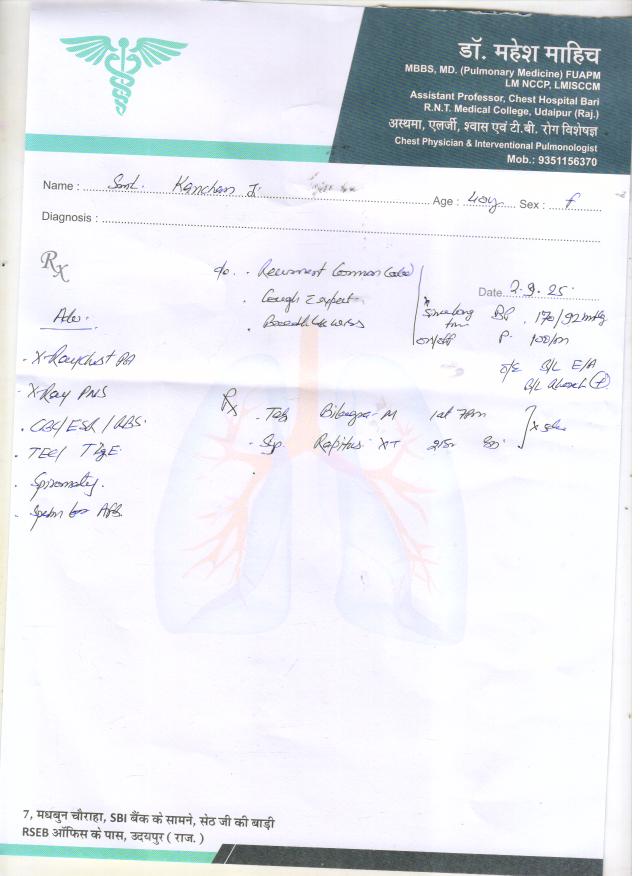 डॉ. महेश माहिच
MBBS, MD. (Pulmonary Medicine) FUAPM
LM NCCP, LMISCCM
Assistant Professor, Chest Hospital Bari
R.N.T. Medical College, Udaipur (Raj.)
अस्थमा, एलर्जी, श्वास एवं टी.बी. रोग विशेषज्ञ
Chest Physician & Interventional Pulmonologist
Mob.: 9351156370
Name : Smt. Kanchan Ji Age : 40y Sex : f
Diagnosis :
Rx
c/o. . Recurrent Common Cold
Date 2.9.25
. Cough c expect.
. Breathlessness
Since long time
on/off
BP . 170/92 mmHg
P. 100/m
o/e B/L E/A
Adv.
. X-Ray chest PA
. X-Ray PNS
. CBC/ESR/RBS.
. TEC/ TIgE.
. Spirometry.
. Sputum for AFB.
Rx . Tab Bilagra-M 1 at 7pm
. Syp. Rapitus XT
7, मधबुन चौराहा, SBI बैंक के सामने, सेठ जी की बाड़ी
RSEB ऑफिस के पास, उदयपुर ( राज. )